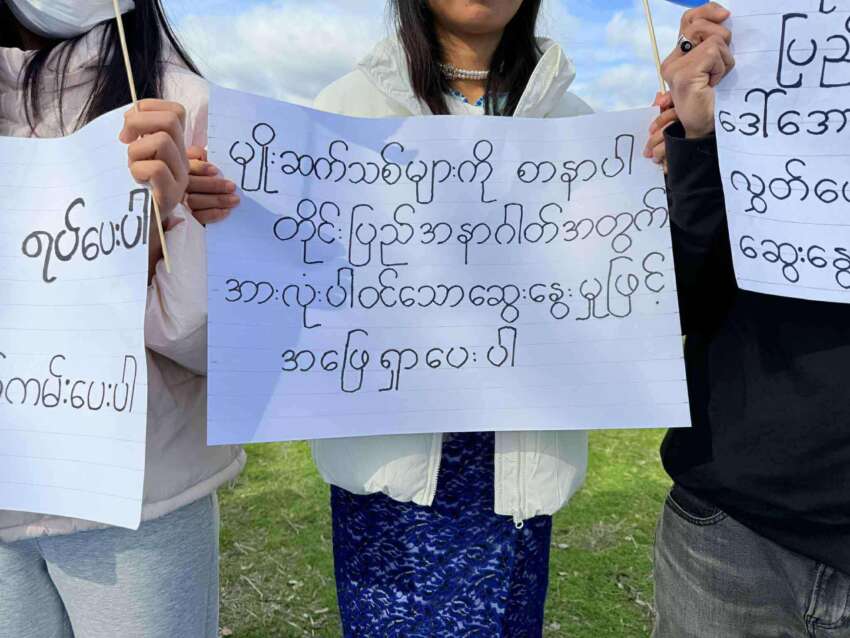 ရပ်ပေးပါ
ကမ်းပေးပါ
မျိုးဆက်သစ်များကို စာနာပါ
တိုင်းပြည်အနာဂါတ်အတွက်
အားလုံးပါဝင်သောဆွေးနွေးမှုဖြင့်
အဖြေရှာပေးပါ
ပြည်
ဒေါ်အော
လွှတ်ပေ
ဆွေးနွေ